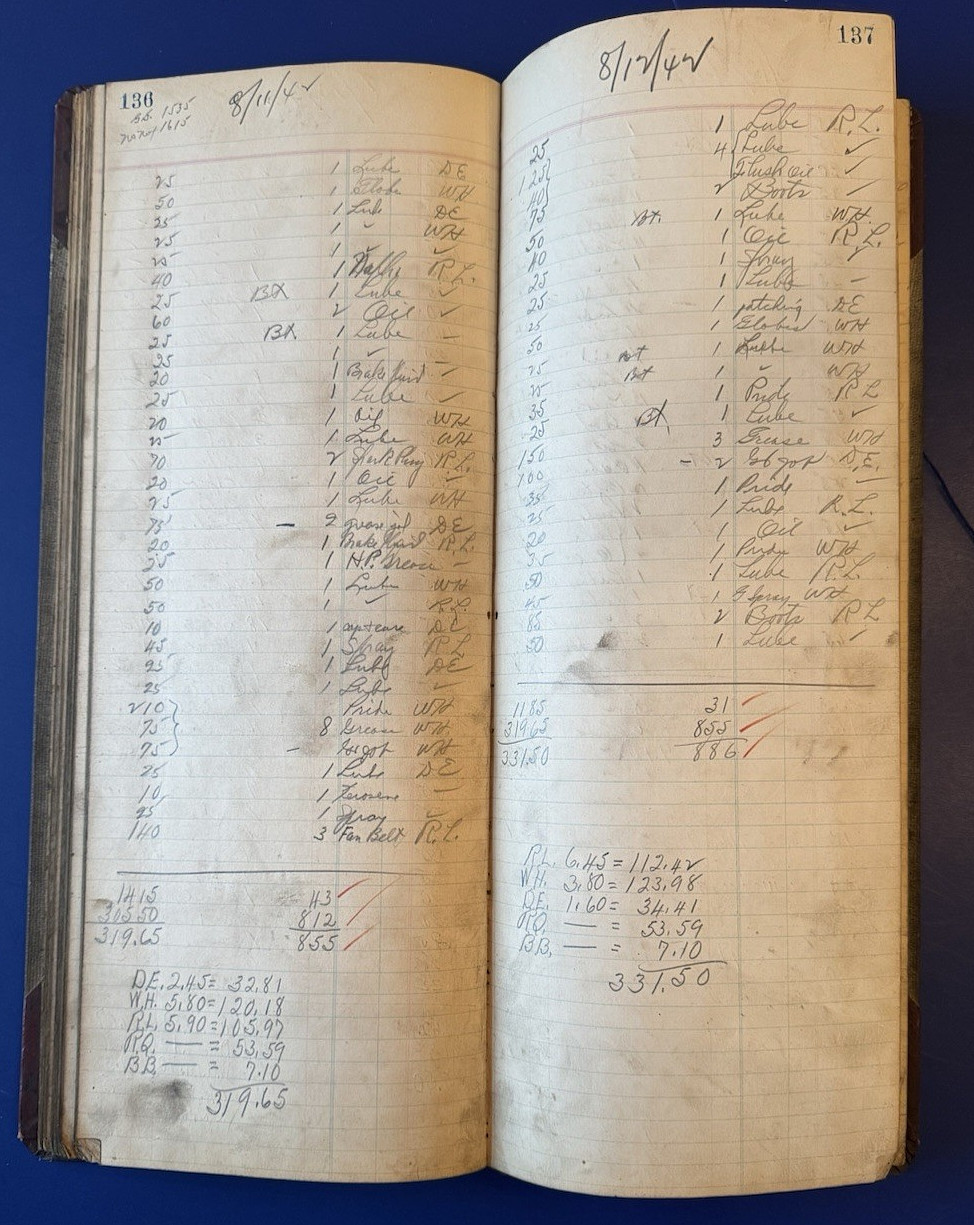 136
8/11/42
B.S. 1535
1615
1 Lube DE
25 1 Globe WH
50 1 Lub DE
25 1 " WH
25 1 " ✓
25 1 R.L.
40 1 Lube ✓
25 BX 2 Oil ✓
60 1 Lube –
25 BX 1 "
25 1 Brake fluid –
20 1 Lube –
25 1 Oil WH
20 1 Lube WH
25 2 Spark Plug R.L.
70 1 Oil –
20 1 Lube WH
25 – 2 grease gil DE
75 1 Brake fluid R.L.
20 1 H.P. Grease –
25 1 Lube WH
50 1 " R.L.
50 1 DE
10 1 Spray R L
45 1 Lube DE
25 1 Lube –
25 Pride WH
210 8 Grease WH
75 – WH
75 1 Lube DE
25 1 Kerosene –
10 1 Spray –
25 3 Fan Belt R.L.
140
1415 43
305.50 812
319.65 855
DE. 2.45 = 32.81
WH. 5.80 = 120.18
R.L. 5.90 = 105.97
RQ. — = 53.59
BB. — = 7.10
319.65
137
8/12/42
1 Lube R.L.
25 4 Lube ✓
125 Flush Oil ✓
40 2 Boots –
75 Bt. 1 Lube WH.
50 1 Oil R.L.
10 1 Spray ✓
25 1 Lube –
25 1 patching DE
25 1 Globes WH
50 Bt 1 Lube WH
25 Bt 1 " WH
25 1 Pride R L
35 BX 1 Lube ✓
25 3 Grease WH
150 – 2 D.E.
100 1 Pride –
35 1 Lube R.L.
25 1 Oil ✓
20 1 Pride WH
35 1 Lube R.L.
50 1 G Spray WH
45 2 Boots R L
85 1 Lube –
50
1185 31
319.65 855
331.50 886
R.L. 6.45 = 112.42
WH. 3.80 = 123.98
DE. 1.60 = 34.41
RQ. — = 53.59
BB. — = 7.10
331.50